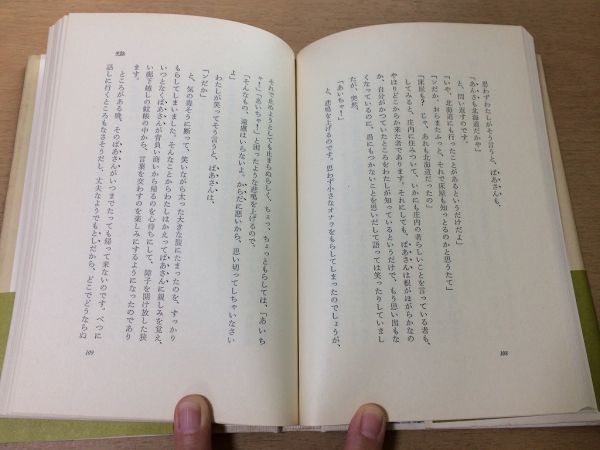 思わずわたしがそう言うと、ばあさんも、
「あんさも北海道だかや」
と、問い返すのです。
「いや、北海道にも行ったことがあるというだけだよ」
「ンだか。おらまたふっと、それで床屋も知っとるのかと思うたて」
「床屋も？ じゃ、あれも北海道だったの」
　してみると、庄内に住みついて、いかにも庄内の者らしいことを言っている者も、
やはりどこからか来た者であります。それにしても、ばあさんは根がほがらかなの
か、自分がかつていたところをわたしが知っているというだけで、もう思い出もな
くなっているのに、愚にもつかないことを思いだして語っては笑ったりしていまし
たが、突然、
「あいちゃー！」
と、悲鳴を上げるのです。思わず小さなオナラをもらしてしまったのでしょうが、
108
それで止めようとしても止まらぬらしく、ちょっ、ちょっともらしては、「あいち
ゃー！」「あいちゃー！」と困ったような悲鳴を上げるので、
「そんなもの、遠慮はいらないよ。からだに悪いから、思い切ってしちゃいなさい
よ」
　わたしが笑ってそう言うと、ばあさんは、
「ンだか」
と、気の毒そうに断って、笑いながら太った大きな腹にたまったのを、すっかり
もらしてしまいました。そんなことからわたしはかえってばあさんに親しみを覚え、
いつとなくばあさんが背負い商いから帰るのを心待ちにして、障子を開け放した狭
い廊下越しの蚊帳の中から、言葉を交わすのを楽しみにするようになったのであり
ます。
　ところがある晩、そのばあさんがいつまでたっても帰って来ないのです。べつに
話しに行くところもなさそうだし、丈夫なようでもとしだから、どこでどうならぬ
109